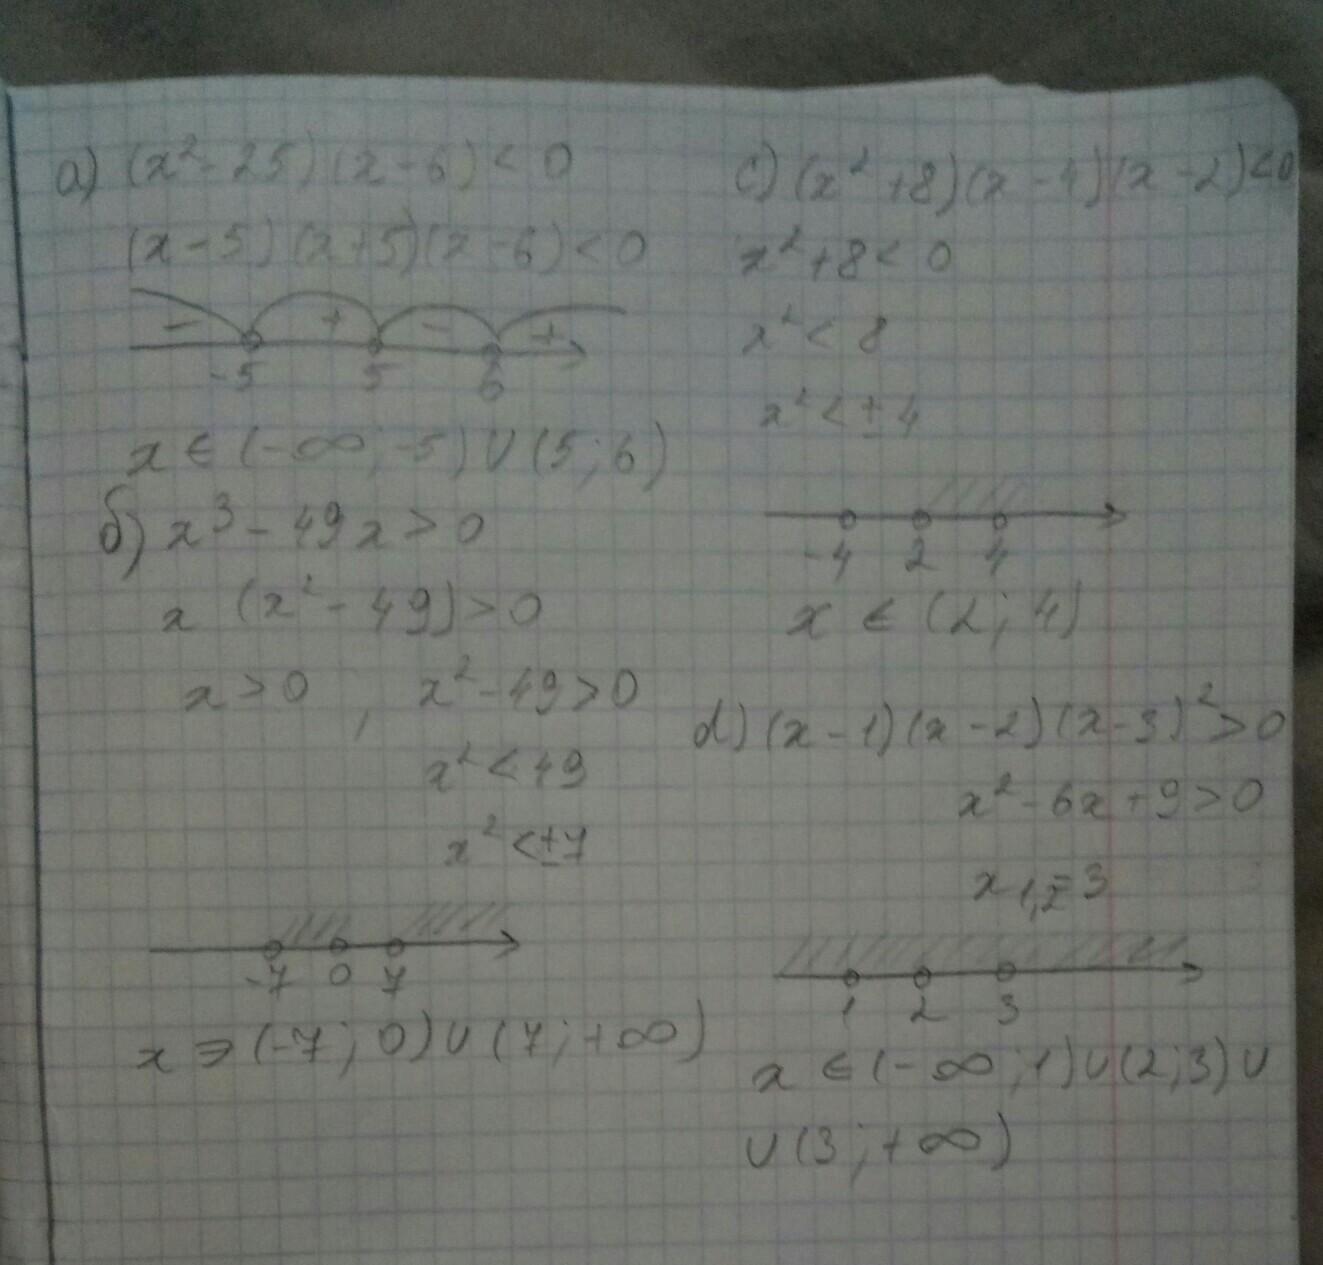 а) (x² - 25)(x - 6) < 0
(x - 5)(x + 5)(x - 6) < 0
- + - +
-5 5 6
x ∈ (-∞; -5) ∪ (5; 6)
б) x³ - 49x > 0
x (x² - 49) > 0
x > 0 , x² - 49 > 0
x² < 49
x² < ±7
-7 0 7
x ∋ (-7; 0) ∪ (7; +∞)
c) (x² + 8)(x - 4)(x - 2) < 0
x² + 8 < 0
x² < 8
x² < ±4
-4 2 4
x ∈ (2; 4)
d) (x - 1)(x - 2)(x - 3)² > 0
x² - 6x + 9 > 0
x₁,₂ = 3
1 2 3
x ∈ (-∞; 1) ∪ (2; 3) ∪
∪ (3; +∞)